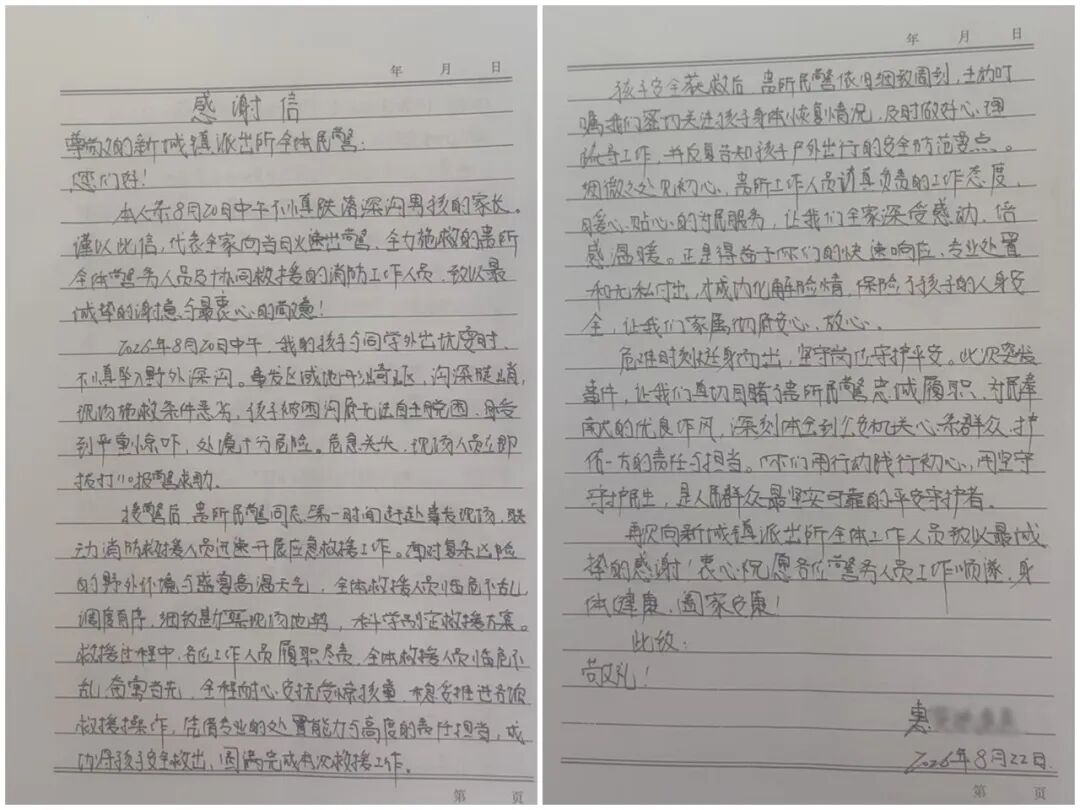 年 月 日
感谢信
尊敬的新城镇派出所全体民警:
您们好!
本人系8月20日中午不慎跌落深沟男孩的家长。
谨以此信,代表全家向当日火速出警、全力施救的贵所
全体警务人员及协同救援的消防工作人员,致以最
诚挚的谢意与最衷心的敬意!
2026年8月20日中午,我的孩子与同学外出玩耍时,
不慎坠入野外深沟。事发区域地形崎岖,沟深陡峭,
现场施救条件恶劣,孩子被困沟底无法自主脱困,身受
到严重惊吓,处境十分危险。危急关头,现场人员立即
拨打110报警求助。
接警后,贵所民警同志第一时间赶赴事发现场,联
动消防救援人员迅速开展应急救援工作。面对复杂凶险
的野外环境与盛夏高温天气,全体救援人员临危不乱,
调度有序,细致勘察现场地势,科学制定救援方案。
救援过程中,各位工作人员履职尽责,全体救援人员临危不
乱,奋勇当先,全程耐心安抚受惊孩童,稳妥推进各项
救援操作,凭借专业的处置能力与高度的责任担当,成
功将孩子安全救出,圆满完成本次救援工作。
第 页
年 月 日
孩子安全获救后,贵所民警依旧细致周到,主动叮
嘱我们密切关注孩子身体恢复情况,及时做好心理
疏导工作,并反复告知孩子户外出行的安全防范要点。
细微之处见初心,贵所工作人员认真负责的工作态度、
暖心贴心的为民服务,让我们全家深受感动、倍
感温暖。正是得益于你们的快速响应、专业处置
和无私付出,才成功化解险情,保险了孩子的人身安
全,让我们家属彻底安心、放心。
危难时刻挺身而出,坚守岗位守护平安。此次突发
事件,让我们真切目睹了贵所民警忠诚履职、为民奉
献的优良作风,深刻体会到公安机关心系群众、护
佑一方的责任与担当。你们用行动践行初心,用坚守
守护民生,是人民群众最坚实可靠的平安守护者。
再次向新城镇派出所全体工作人员致以最诚
挚的感谢!衷心祝愿各位警务人员工作顺遂、身
体健康、阖家安康!
此致:
敬礼!
惠
2026年8月22日
第 页